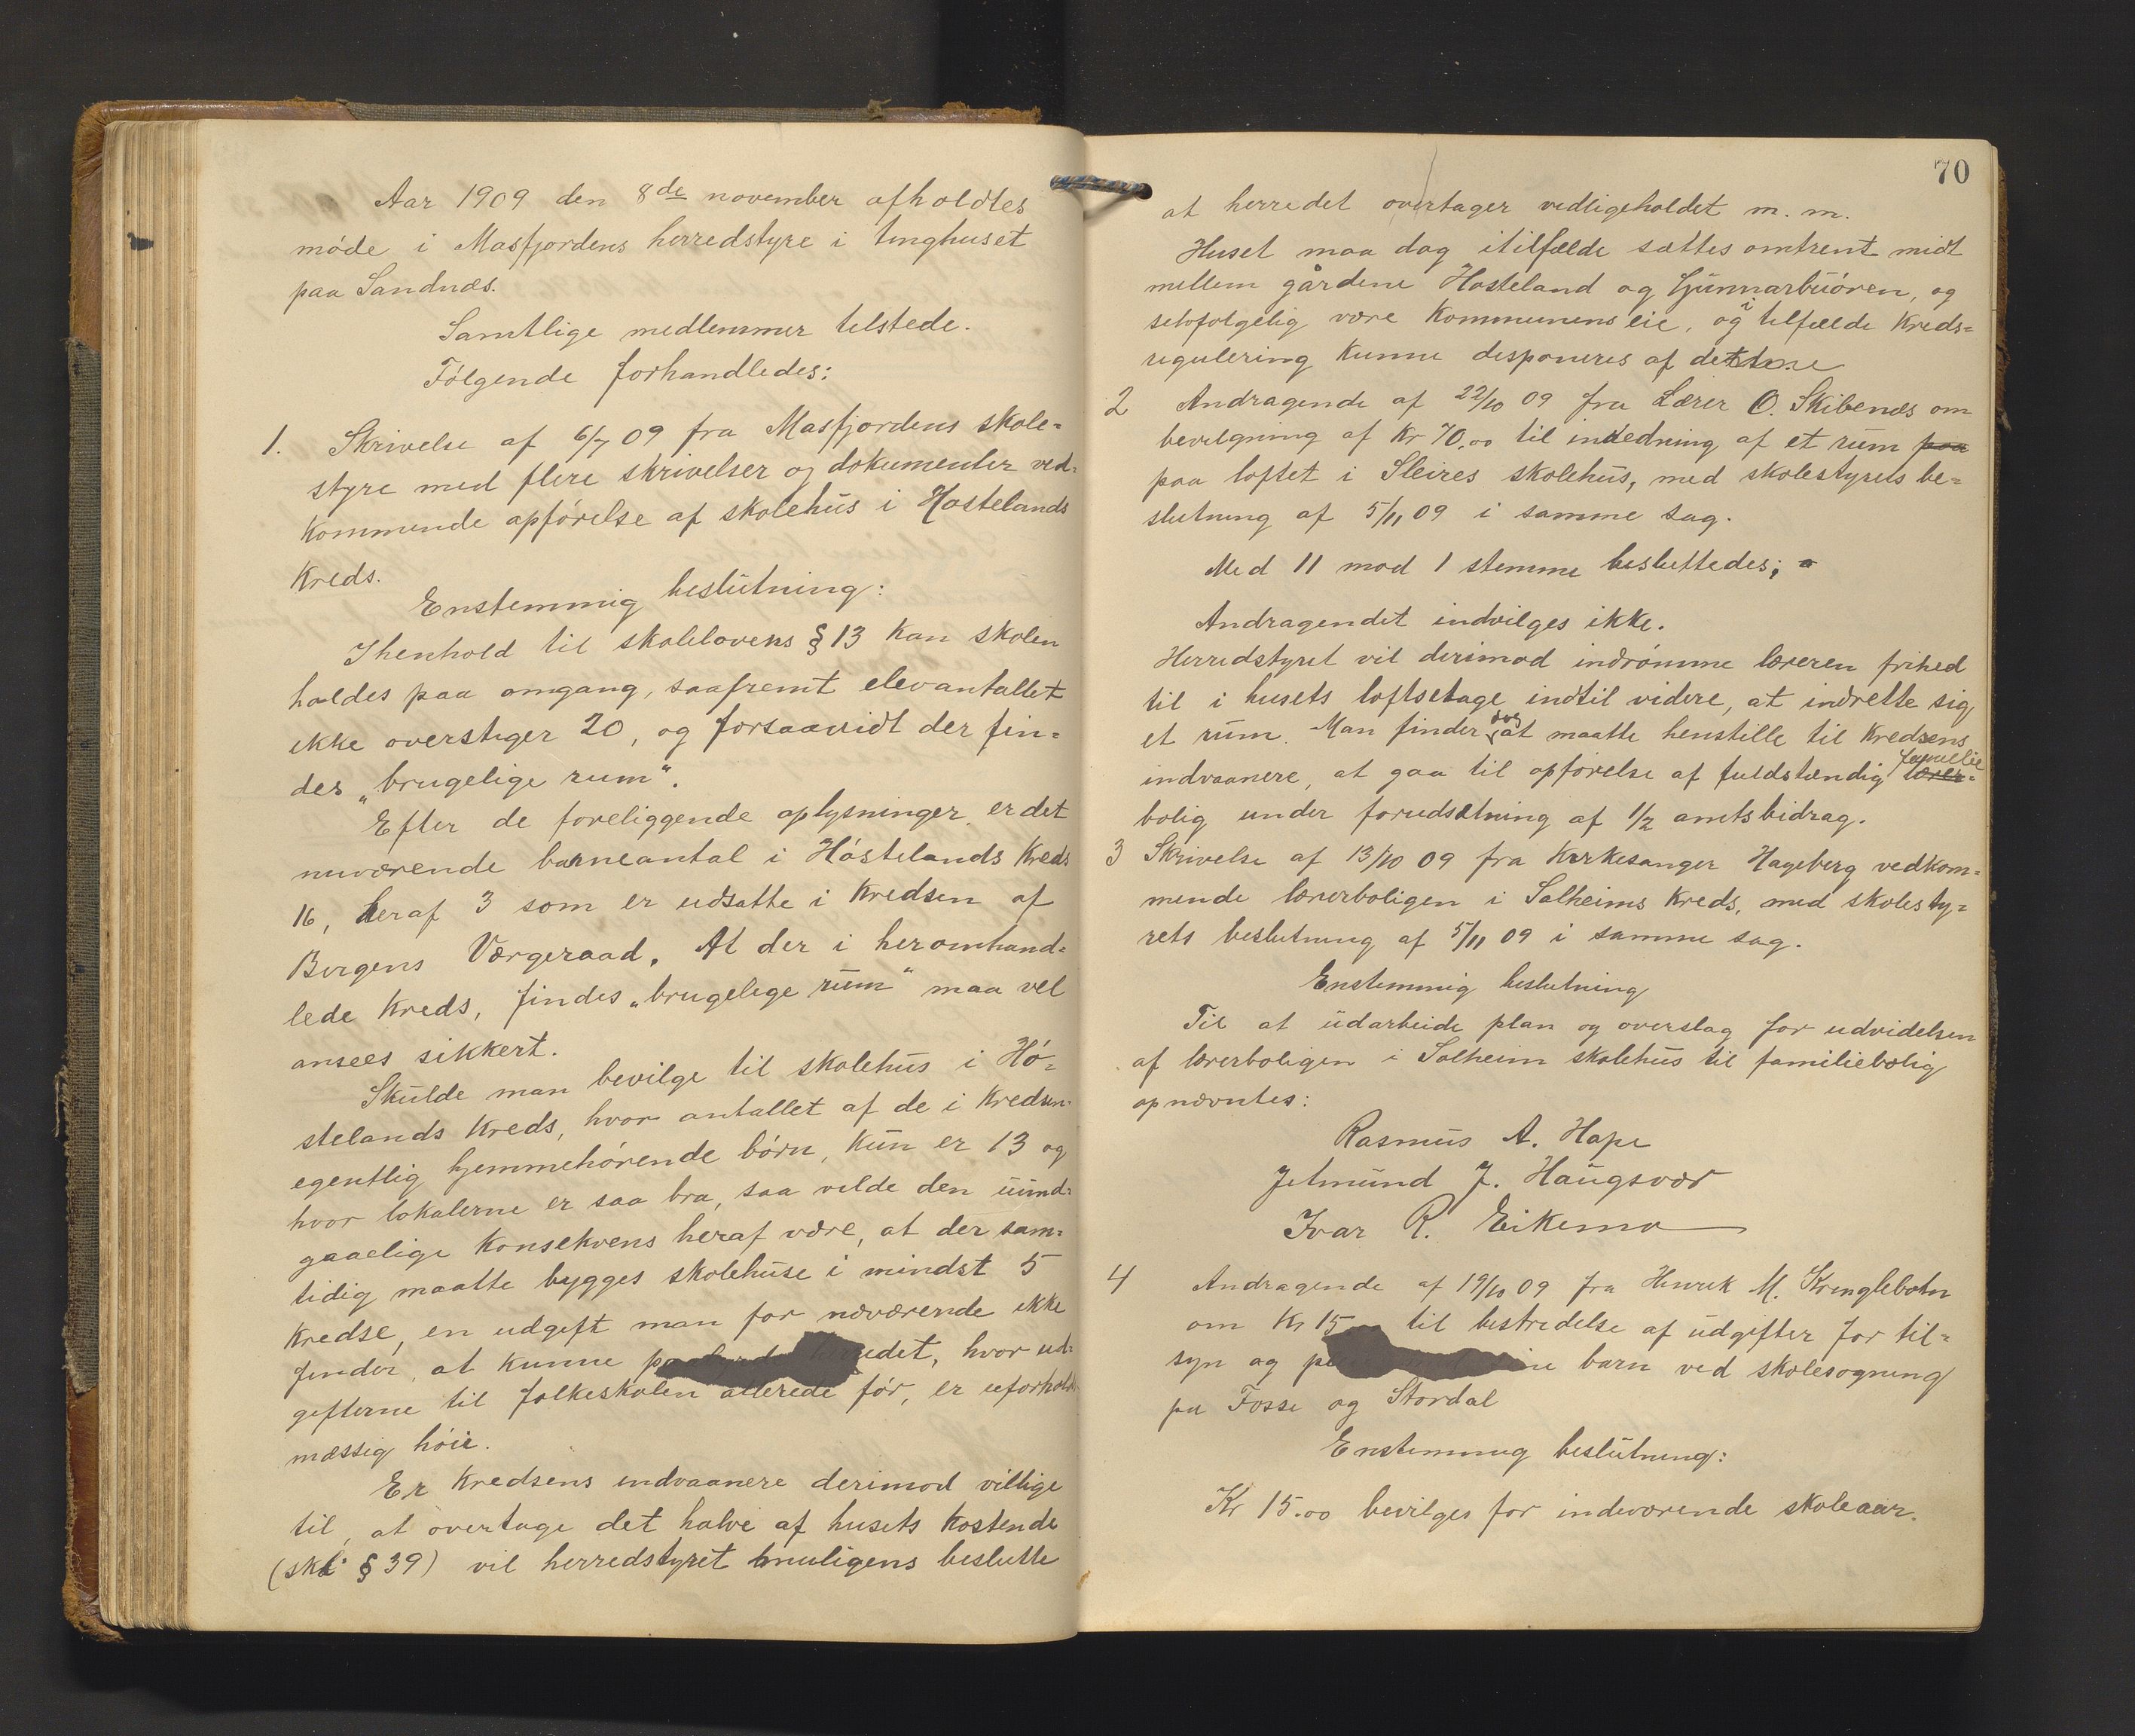 Aar 1909 den 8de november afholdtes
møde i Masfjordens herredstyre i tinghuset
paa Sandnæs.
Samtlige medlemmer tilstede.
Følgende forhandledes:
1. Skrivelse af 6/7 09 fra Masfjordens skole-
styre med flere skrivelser og dokumenter ved-
kommende opførelse af skolehus i Hostelands
kreds.
Enstemmig beslutning:
Ihenhold til skolelovens § 13 kan skolen
holdes paa omgang, saafremt elevantallet
ikke overstiger 20, og forsaavidt der fin-
des „brugelige rum“.
Efter de foreliggende oplysninger er det
nuværende barneantal i Høstelands kreds
16, heraf 3 som er udsatte i kredsen af
Bergens Værgeraad. At der i heromhand-
lede kreds, findes „brugelige rum“ maa vel
ansees sikkert.
Skulde man bevilge til skolehus i Hø-
stelands kreds, hvor antallet af de i kredsen
egentlig hjemmehørende børn, kun er 13 og
hvor lokalerne er saa bra, saa vilde den uund-
gaaelige konsekvens heraf være, at der sam-
tidig maatte bygges skolehuse i mindst 5
kredse, en udgift man for nærværende ikke
finder, at kunne hvor ud-
gifterne til folkeskolen allerede før, er uforhold
mæssig høie.
Er kredsens indvaanere derimod villige
til, at overtage det halve af husets kostende
(skl § 39) vil herredstyret muligens beslutte
70
at herredet overtager vedligeholdet m. m.
Huset maa dog itilfælde sættes omtrent midt
mellem gårdene Hosteland og Gunnarbuøren, og
selvfølgelig være kommunens eie, og i tilfælde kreds-
regulering kunne disponeres af denne
2 Andragende af 22/10 09 fra Lærer O. Skibenes om
bevilgning af Kr 70.00 til indredning af et rum paa
paa loftet i Sleires skolehus, med skolestyrets be-
slutning af 5/11 09 i samme sag.
Med 11 mod 1 stemme besluttedes;
Andragendet indvilges ikke.
Herredstyret vil derimod indrømme læreren frihed
til i husets loftsetage indtil videre, at indrette sig
et rum. Man finder dog at maatte henstille til kredsens
indvaanere, at gaa til opførelse af fuldstændig lærer- familie
bolig under forudsætning af 1/2 amtsbidrag.
3 Skrivelse af 13/10 09 fra Kirkesanger Hageberg vedkom-
mende lærerboligen i Solheims kreds, med skolesty-
rets beslutning af 5/11 09 i samme sag.
Enstemmig beslutning
Til at udarbeide plan og overslag for udvidelsen
af lærerboligen i Solheim skolehus til familiebolig
opnævntes:
Rasmus A. Hope
Jetmund J. Haugsvær
Ivar R. Eikemo
4 Andragende af 19/10 09 fra Henrik M. Kringlebotn
om Kr 15 til bestridelse af udgifter for til-
syn og barn ved skolesøgning
på Fosse og Stordal
Enstemmig beslutning:
Kr 15.00 bevilges for indeværende skoleaar.